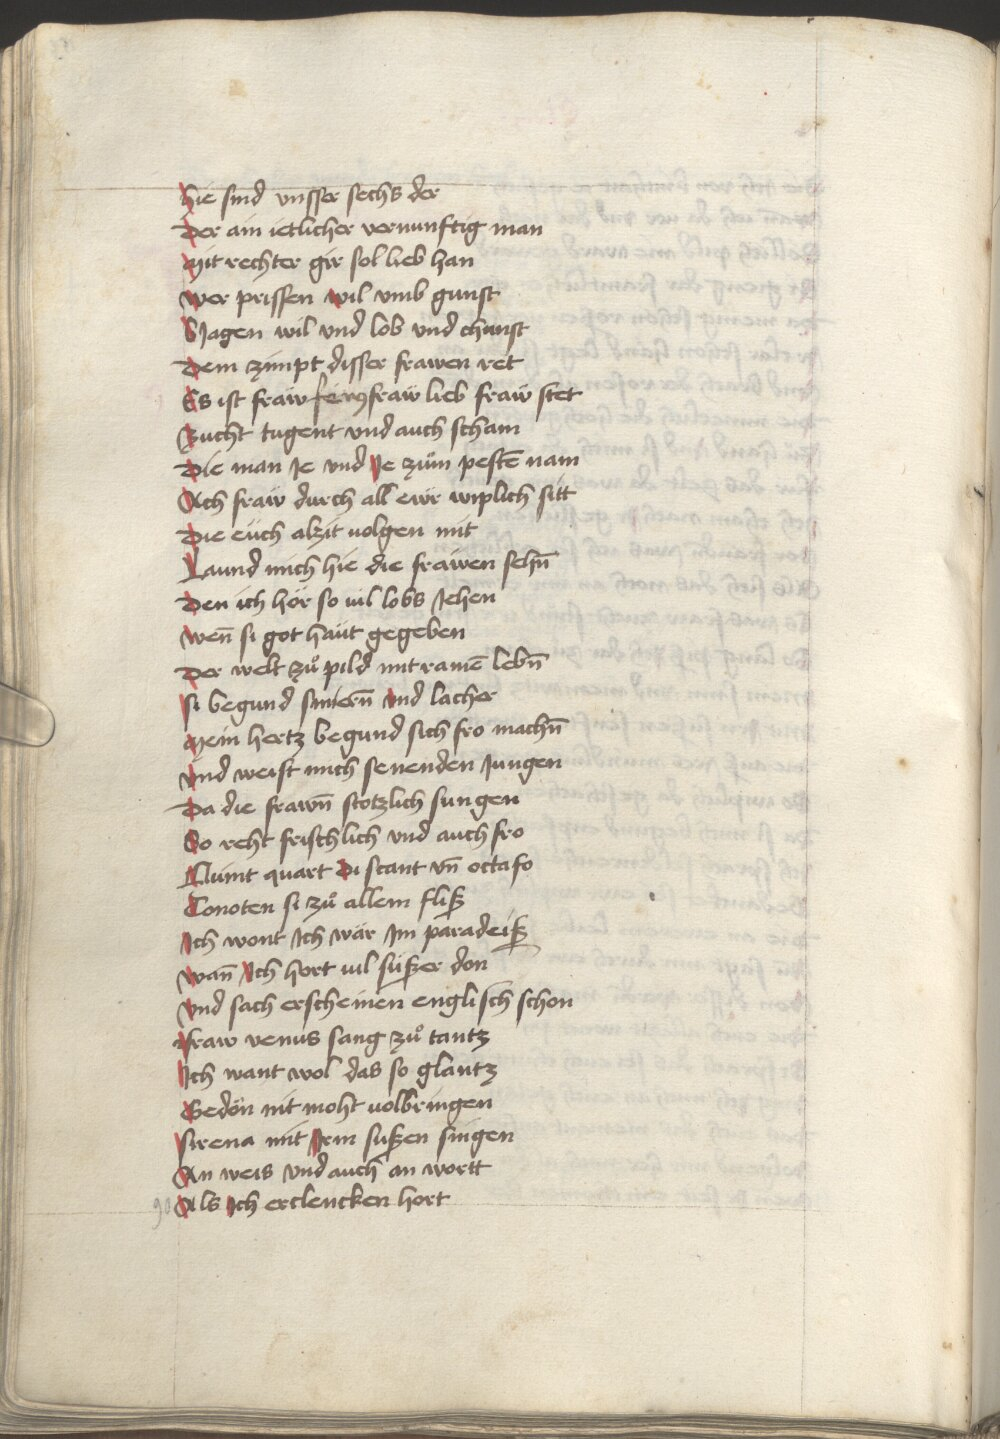 hie sind vnsser sechs der
Der ain ietlicher vernunftig man
Mit rechter gir sol lieb han
wer prissen wil vmb gunst
Bejagen wil vnd lob vnd chunst
Dem zimpt disser frawen ret
Es ist fraw fenus fraw lieb fraw stet
Zucht tugent vnd auch scham
Die man Je vnd Je zům pestē nam
Ach fraw durch all ewr wiplich sitt
Die eüch alzit uolgen mit
Laund mich hie die frawen sehn̄
Den ich hör so uil lobs Jehen
wen̄ si got haut gegeben
Der welt zů pild mit rainē lebn̄
si begund smiern̄ vnd lacher
Mein hertz begund sich fro machn̄
vnd weist mich senenden Jungen
Da die frawn̄ stotzlich sungen
So reht frischlich vnd auch fro
Quint quart Discant vn̄ octafo
Conoten si zů allem fliß
Ich wont Ich wär Im paradeiß
wan̄ Ich hort uil süßer don
vnd sach erscheinen englisch schon
fraw venus sang zů tantz
Ich want wol das so glantz
Gedön nit moht uolbringen
sirena mit Irm sußen singen
An weis vnd auch an wortt
Als Ich erclencken hort
90